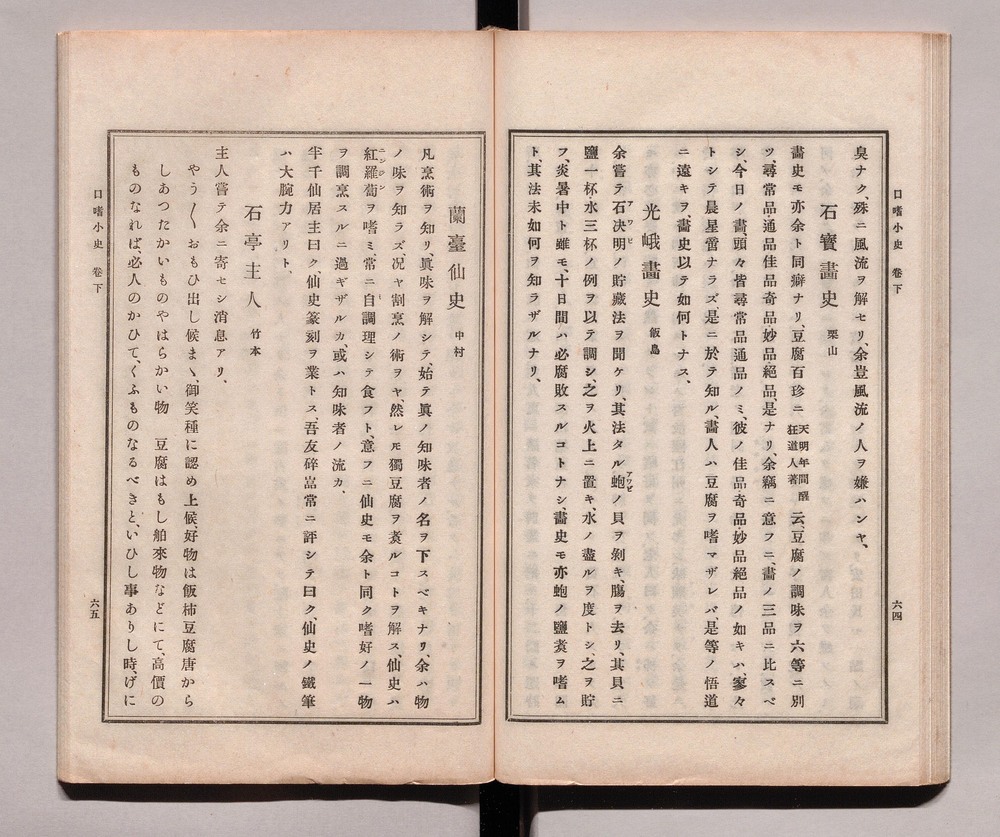 口嗜小史　卷下
六四
臭ナク、殊ニ風流ヲ解セリ、余豈風流ノ人ヲ嫌ハンヤ、
石寶畵史　栗山
畵史モ亦余ト同癖ナリ、豆腐百珍ニ天明年間醒狂道人著云、豆腐ノ調味ヲ六等ニ別
ツ、尋常品、通品、佳品、奇品、妙品、絕品、是ナリ、余竊ニ意フニ、畵ノ三品ニ比スベ
シ、今日ノ畵、頭々皆尋常品通品ノミ、彼ノ佳品奇品妙品絕品ノ如キハ、寥々
トシテ晨星啻ナラズ、是ニ於テ知ル、畵人ハ豆腐ヲ嗜マザレバ、是等ノ悟道
ニ遠キヲ、畵史以テ如何トナス、
光峨畵史　飯島
余嘗テ石決明アワビノ貯藏法ヲ聞ケリ、其法タル鮑アワビノ貝ヲ剝キ、膓ヲ去リ、其貝ニ
鹽一杯、水三杯ノ例ヲ以テ調シ、之ヲ火上ニ置キ、水ノ盡ルヲ度トシ、之ヲ貯
フ、炎暑中ト雖モ、十日間ハ必腐敗スルコトナシ、畵史モ亦鮑ノ鹽煑ヲ嗜ム
ト、其法未如何ヲ知ラザルナリ、
蘭臺仙史　中村
凡烹術ヲ知リ、眞味ヲ解シテ、始テ眞ノ知味者ノ名ヲ下スベキナリ、余ハ物
ノ味ヲ知ラズ、况ヤ割烹ノ術ヲヤ、然レ𪜈獨豆腐ヲ煑ルコトヲ解ス、仙史ハ
紅羅蔔ニンジンヲ嗜ミ、常ニ自調理シテ食フト、意フニ仙史モ余ト同ク嗜好ノ一物
ヲ調烹スルニ過ギザルカ、或ハ知味者ノ流カ、
半千仙居主曰ク、仙史篆刻ヲ業トス、吾友碎嵓常ニ評シテ曰ク、仙史ノ鐵筆
ハ大腕力アリト、
石亭主人　竹本
主人嘗テ余ニ寄セシ消息アリ、
やう〱おもひ出し候まゝ、御笑種に認め上候、好物は飯柿豆腐唐から
しあつたかいものやはらかい物　豆腐はもし舶來物などにて、高價の
ものなれば、必人のかひて、くふものなるべきと、いひし事ありし時、げに
口嗜小史　卷下
六五